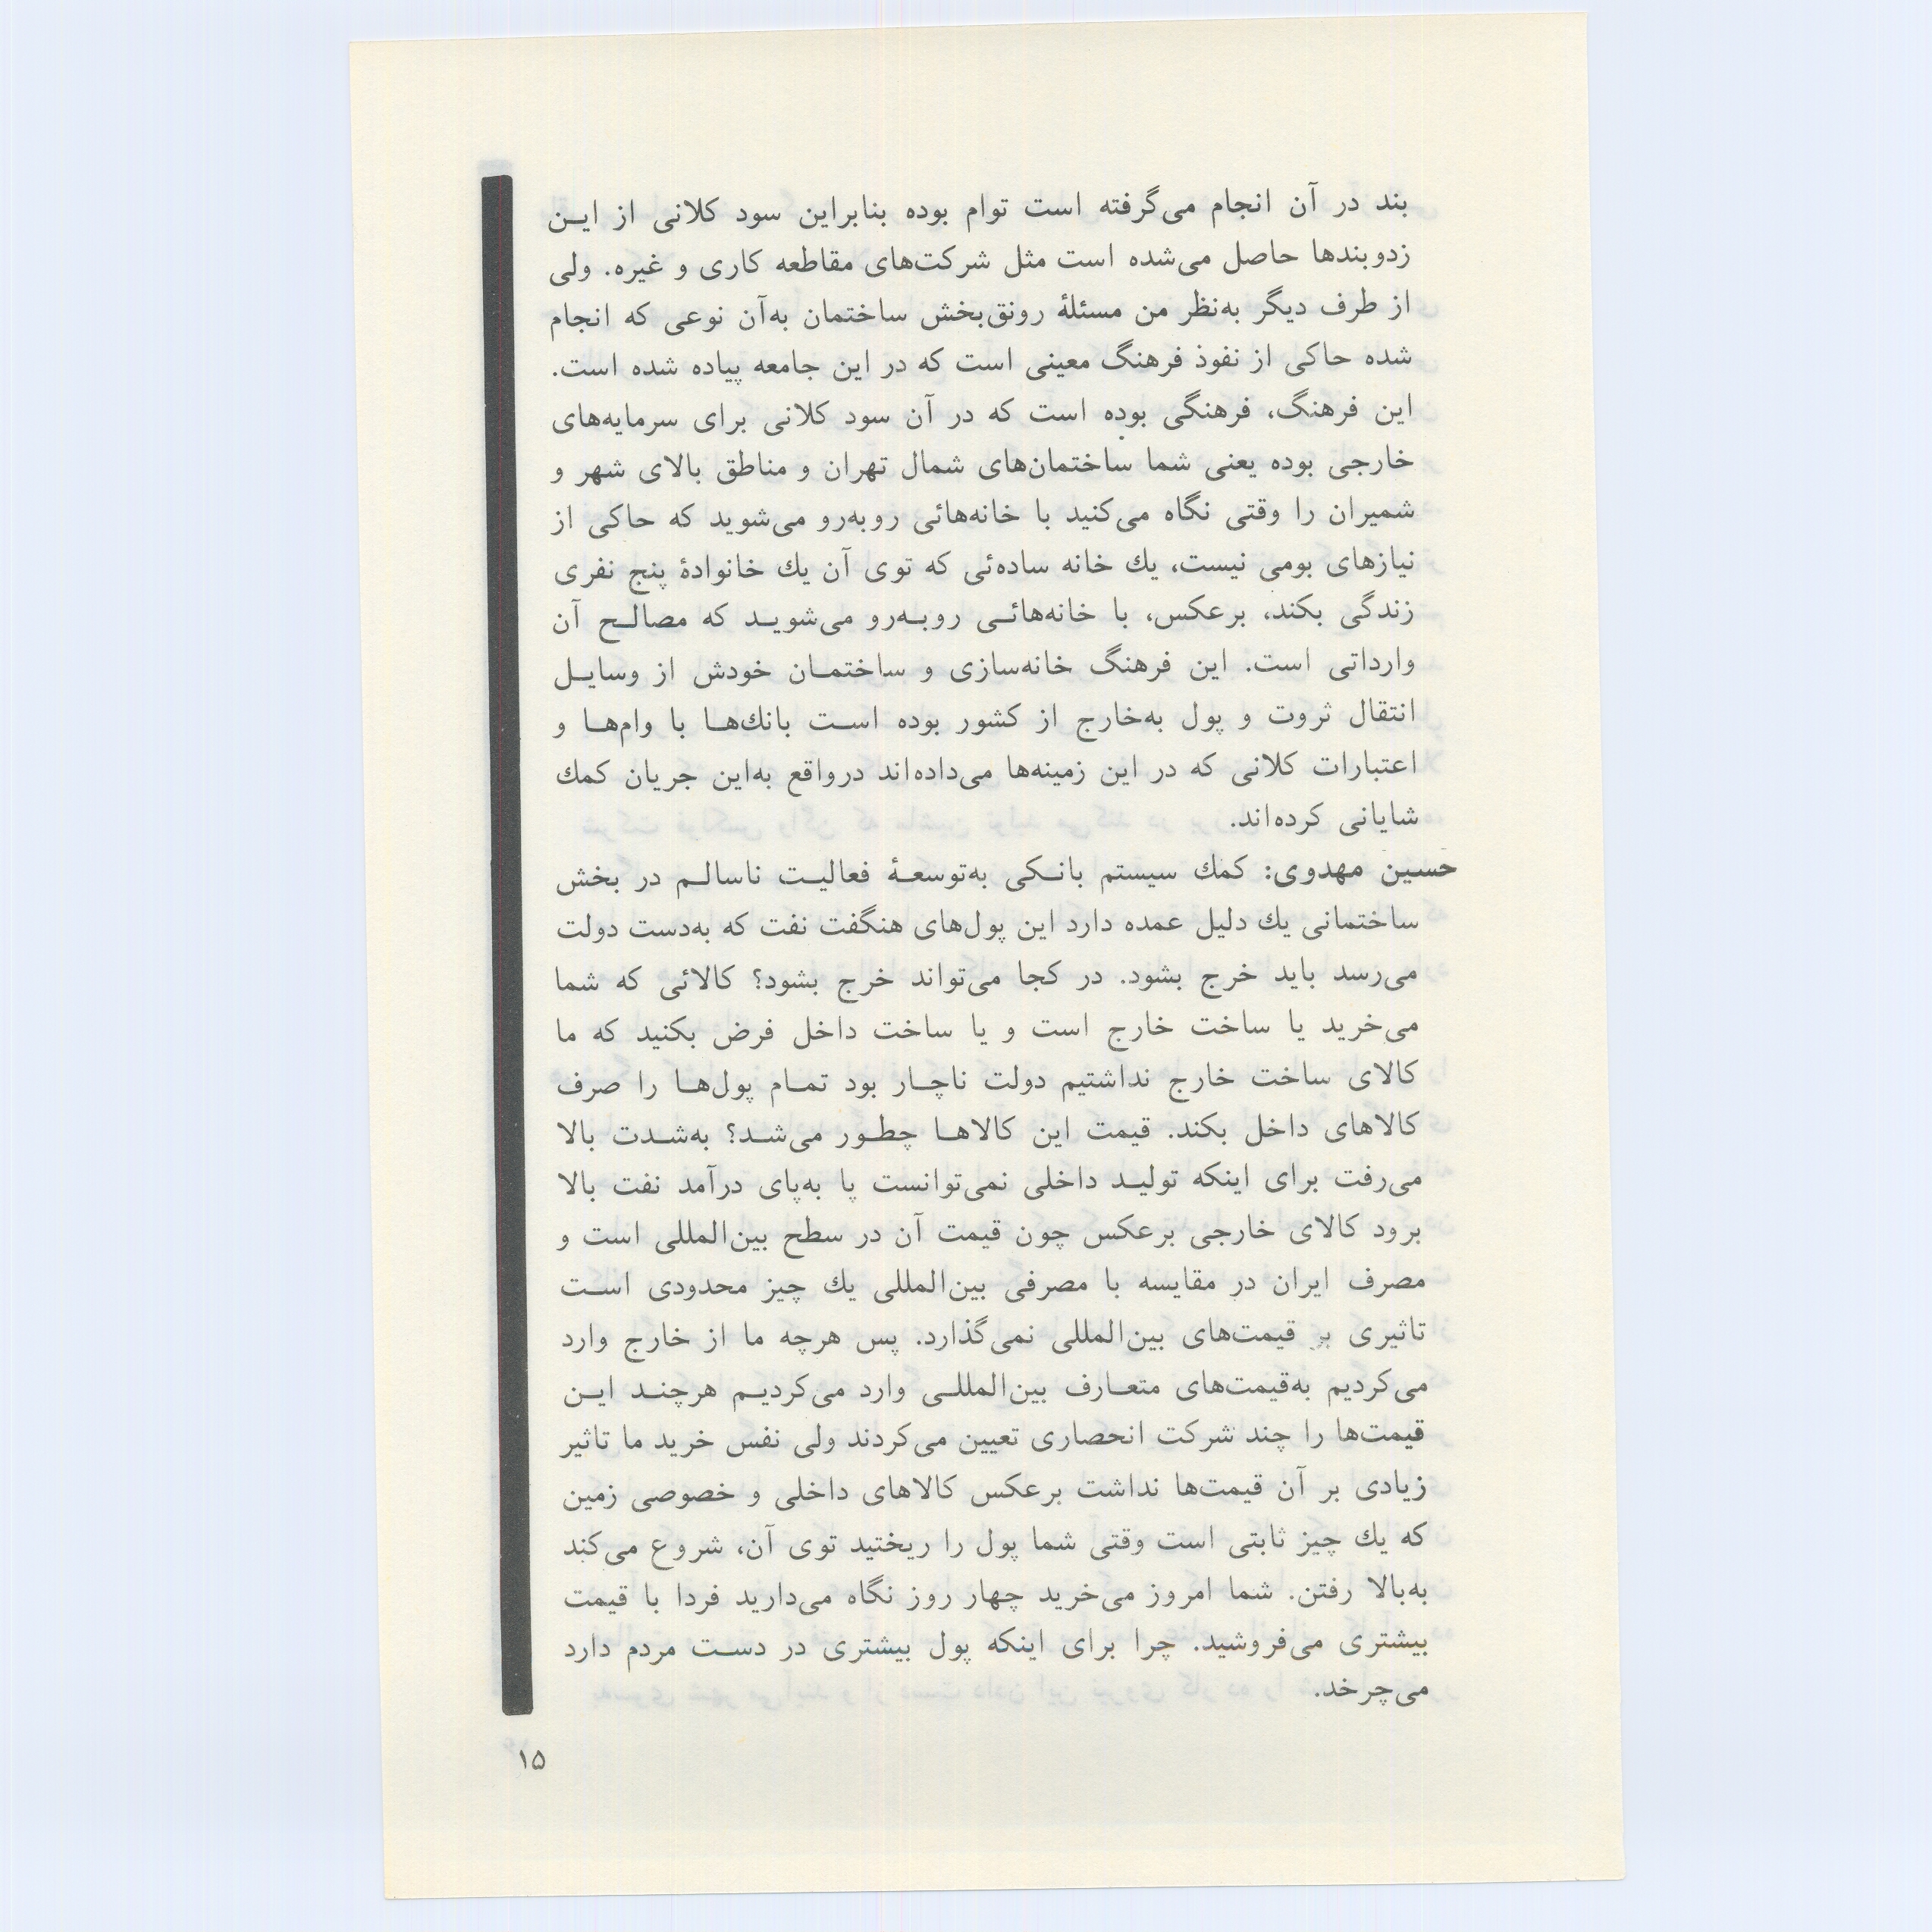 بند در آن انجام می‌گرفته است توام بوده بنابراین سود کلانی از ایـن
زدوبندها حاصل می‌شده است مثل شرکت‌های مقاطعه کاری و غیره. ولی
از طرف دیگر به‌نظر من مسئلهٔ رونق‌بخش ساختمان به‌آن نوعی که انجام
شده حاکی از نفوذ فرهنگ معینی است که در این جامعه پیاده شده است.
این فرهنگ، فرهنگی بوده است که در آن سود کلانی برای سرمایه‌های
خارجی بوده یعنی شما ساختمان‌های شمال تهران و مناطق بالای شهر و
شمیران را وقتی نگاه می‌کنید با خانه‌هائی روبه‌رو می‌شوید که حاکی از
نیازهای بومی نیست، یك خانه ساده‌ئی که توی آن یك خانوادهٔ پنج نفری
زندگی بکند، برعکس، با خانه‌هائـی روبـه‌رو می‌شویـد که مصالـح آن
وارداتی است. این فرهنگ خانه‌سازی و ساختمـان خودش از وسایـل
انتقال ثروت و پول به‌خارج از کشور بوده اسـت بانك‌هـا با وام‌هـا و
اعتبارات کلانی که در این زمینه‌ها می‌داده‌اند درواقع به‌این جریان کمك
شایانی کرده‌اند.
حسین مهدوی: کمك سیستم بانـکی به‌توسعـهٔ فعالیـت ناسالـم در بخش
ساختمانی یك دلیل عمده دارد این پول‌های هنگفت نفت که به‌دست دولت
می‌رسد باید خرج بشود. در کجا می‌تواند خرج بشود؟ کالائی که شما
می‌خرید یا ساخت خارج است و یا ساخت داخل فرض بکنید که ما
کالای ساخت خارج نداشتیم دولت ناچـار بود تمـام پول‌هـا را صرف
کالاهای داخل بکند. قیمت این کالاهـا چطـور می‌شـد؟ به‌شـدت بالا
می‌رفت برای اینکه تولیـد داخلی نمی‌توانست پا به‌پای درآمد نفت بالا
برود کالای خارجی برعکس چون قیمت آن در سطح بین‌المللی است و
مصرف ایران در مقایسه با مصرفی بین‌المللی یك چیز محدودی اسـت
تاثیری بر قیمت‌های بین‌المللی نمی‌گذارد. پس هرچه ما از خارج وارد
می‌کردیم به‌قیمت‌های متعـارف بین‌المللـی وارد می‌کردیـم هرچنـد ایـن
قیمت‌ها را چند شرکت انحصاری تعیین می‌کردند ولی نفس خرید ما تاثیر
زیادی بر آن قیمت‌ها نداشت برعکس کالاهای داخلی و خصوصی زمین
که یك چیز ثابتی است وقتی شما پول را ریختید توی آن، شروع می‌کند
به‌بالا رفتن. شما امروز می‌خرید چهار روز نگاه می‌دارید فردا با قیمت
بیشتری می‌فروشید. چرا برای اینکه پول بیشتری در دسـت مردم دارد
می‌چرخد.
۱۵